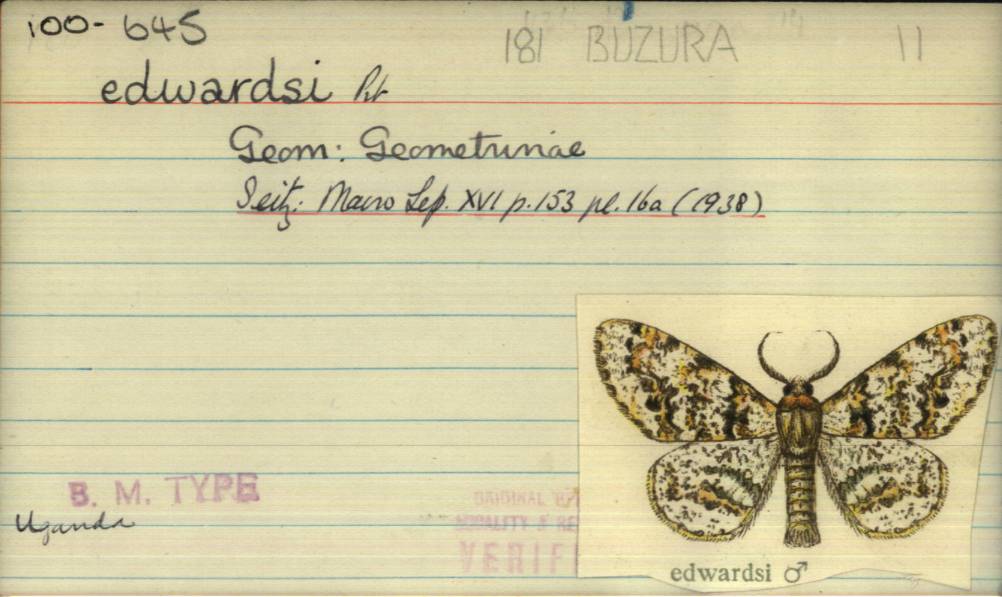 100-645
181 BUZURA 11
edwardsi Prt
Geom: Geometrinae
Seitz: Macro Lep. XVI p.153 pl. 16a (1938)
B. M. TYPE
Uganda
ORIGINAL
VERIFI
edwardsi ♂